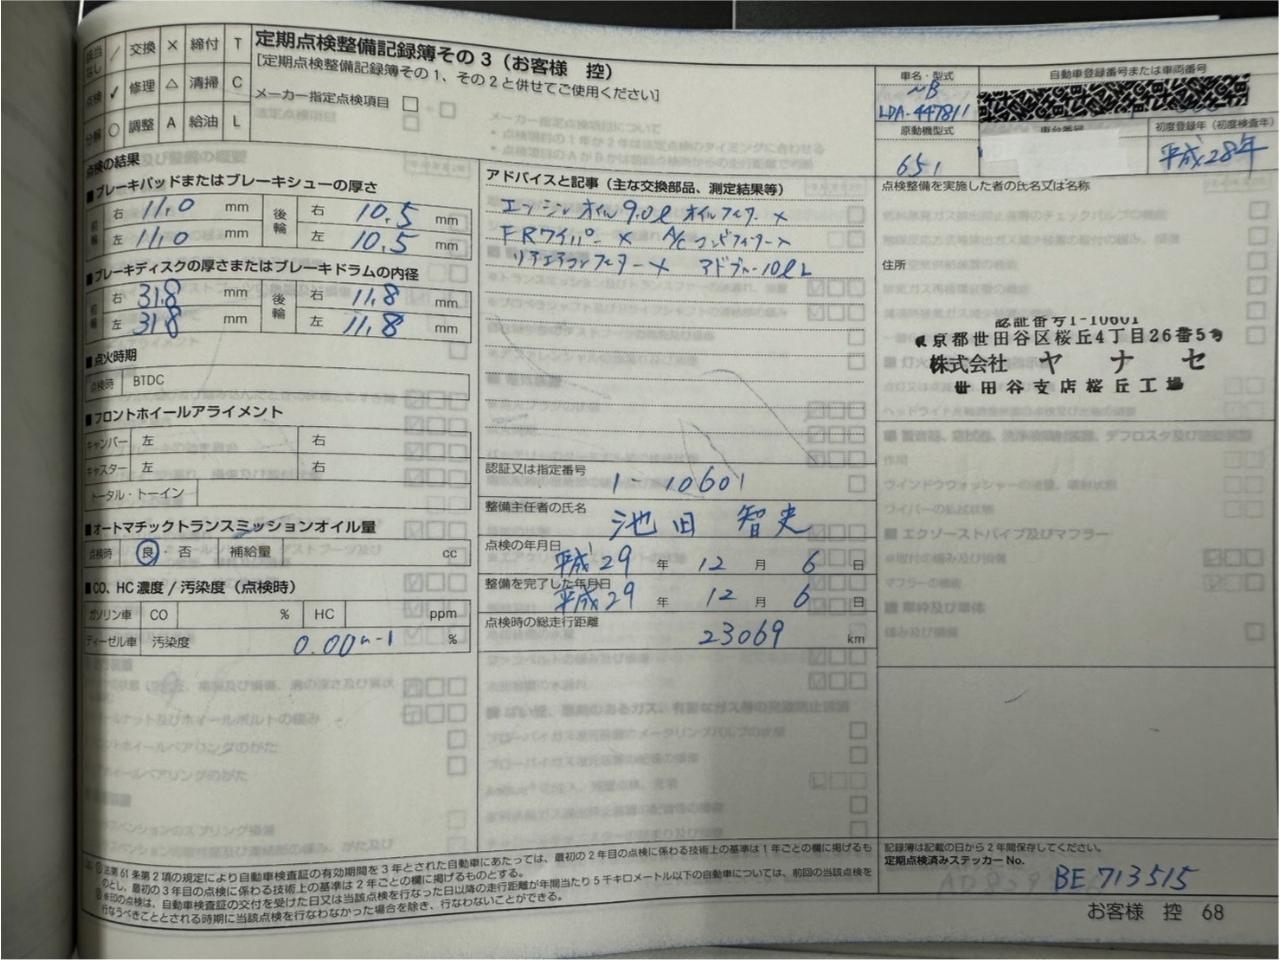 該当なし ／ 交換 × 締付 T
点検 ✓ 修理 △ 清掃 C
分解 ○ 調整 A 給油 L
定期点検整備記録簿その3（お客様 控）
［定期点検整備記録簿その1、その2と併せてご使用ください］
メーカー指定点検項目
車名・型式
MB
LDA-447811
自動車登録番号または車両番号
原動機型式
651
車台番号
初度登録年（初度検査年）
平成28年
点検の結果
■ブレーキパッドまたはブレーキシューの厚さ
前輪 右 11.0 mm 後輪 右 10.5 mm
左 11.0 mm 左 10.5 mm
■ブレーキディスクの厚さまたはブレーキドラムの内径
前輪 右 31.8 mm 後輪 右 11.8 mm
左 31.8 mm 左 11.8 mm
■点火時期
点検時 BTDC
■フロントホイールアライメント
キャンバー 左 右
キャスター 左 右
トータル・トーイン
■オートマチックトランスミッションオイル量
点検時 良・否 補給量 cc
■CO、HC濃度/汚染度（点検時）
ガソリン車 CO % HC ppm
ディーゼル車 汚染度 0.00m-1 %
アドバイスと記事（主な交換部品、測定結果等）
エンジンオイル 9.0ℓ オイルフィルター ×
FRワイパー × A/Cコンビフィルター ×
リアエアコンフィルター × アドブルー10ℓ L
認証又は指定番号
1-10601
整備主任者の氏名
池田 智史
点検の年月日
平成29 年 12 月 6 日
整備を完了した年月日
平成29 年 12 月 6 日
点検時の総走行距離
23069 km
点検整備を実施した者の氏名又は名称
住所
認証番号1-10601
東京都世田谷区桜丘4丁目26番5号
株式会社 ヤナセ
世田谷支店桜丘工場
法第61条第2項の規定により自動車検査証の有効期間を3年とされた自動車にあたっては、最初の2年目の点検に係わる技術上の基準は1年ごとの欄に掲げるも
のとし、最初の3年目の点検に係わる技術上の基準は2年ごとの欄に掲げるものとする。
※印の点検は、自動車検査証の交付を受けた日又は当該点検を行なった日以降の走行距離が年間当たり5千キロメートル以下の自動車については、前回の当該点検を
行なうべきこととされる時期に当該点検を行なわなかった場合を除き、行なわないことができる。
記録簿は記載の日から2年間保存してください。
定期点検済みステッカーNo.
BE 713515
お客様 控 68